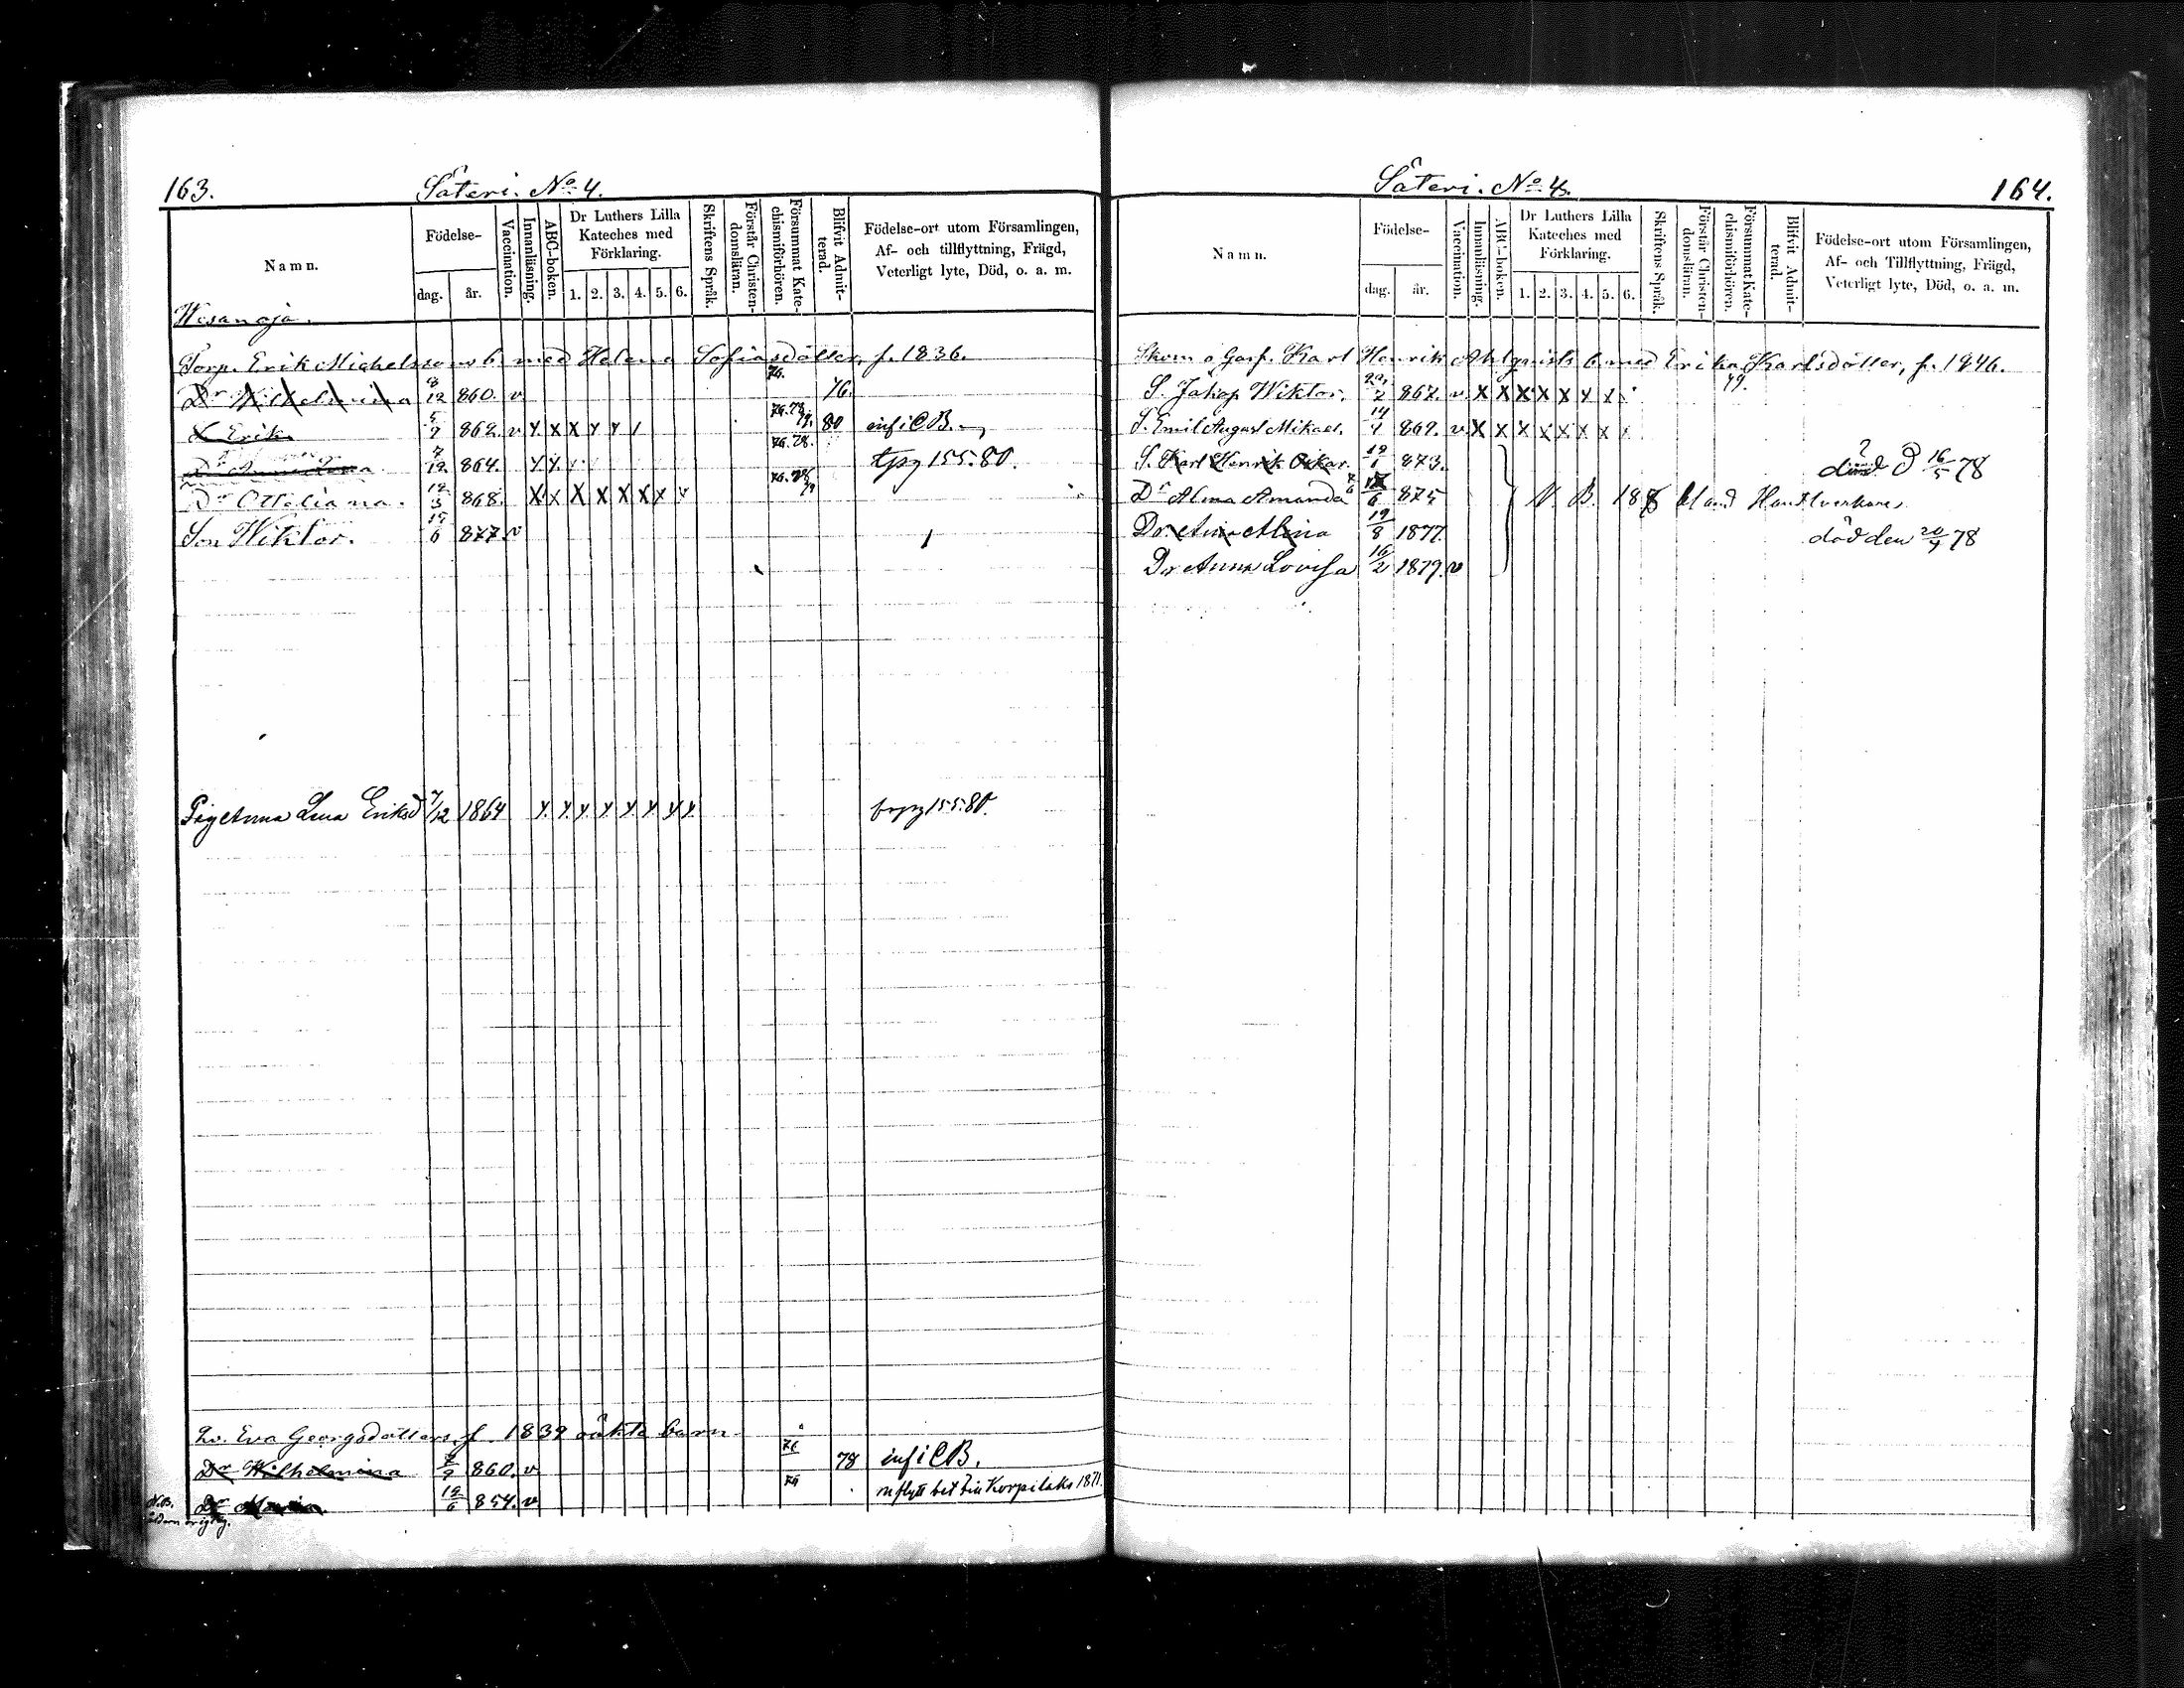 163.
Såteri. No 4.
Namn.
Födelse-
dag.
år.
Vaccination.
Innanläsning.
ABC-boken.
Dr Luthers Lilla
Kateches med
Förklaring.
1. 2. 3. 4. 5. 6.
Skriftens Språk.
Förstår Christen-
domsläran.
Försummat Kate-
chismiförhören.
Blifvit Admit-
terad.
Födelse-ort utom Församlingen,
Af- och tillflyttning, Frägd,
Veterligt lyte, Död, o. a. m.
Wesanoja.
Torp. Erik Michelsson b. med Helena Sofiasdotter, f. 1836.
Dr Wilhelmina 8/12 860. v 76. 76.
S. Erik 5/7 862. v X X X X X / 76.78. 79. 80 inf i C B.
Dr Anna Lena 7/12 864. X X 76.78. tpg 155.80.
Dr Ottiliana. 12/3 868. X X X X X X X v
Son Wiktor. 15/6 877 v
Pig Anna Lena Eriksd 7/12 1864 X X X X X X X X frpg 155.80.
Lo. Eva Georgsdotters, f. 1839 oäkta barn
Dr Wilhelmina 7/9 860. v 76 78 inf i C B.
N.B. Dr Maria 12/6 854. v 76 Korpilaks 1871.
164.
Såteri. No 4.
Namn.
Födelse-
dag.
år.
Vaccination.
Innanläsning.
ABC-boken.
Dr Luthers Lilla
Kateches med
Förklaring.
1. 2. 3. 4. 5. 6.
Skriftens Språk.
Förstår Christen-
domsläran.
Försummat Kate-
chismiförhören.
Blifvit Admit-
terad.
Födelse-ort utom Församlingen,
Af- och Tillflyttning, Frägd,
Veterligt lyte, Död, o. a. m.
Skom. o Garf. Karl Henrik Ahlqvists b. med Erika Karlsdotter, f. 1846.
S. Jakop Wiktor. 22/2 867. v X X X X X X X 79.
S. Emil August Mikael. 14/4 869. v X X X X X X X
S. Karl Henrik Oskar. 12/1 873. död d 16/5 78
Dr Alma Amanda 6 875 N. B. 188 bland Handtverkare,
Dr. Aina Alina 19/8 1877. död den 20/4 78
Dr Anna Lovisa 16/2 1879. v